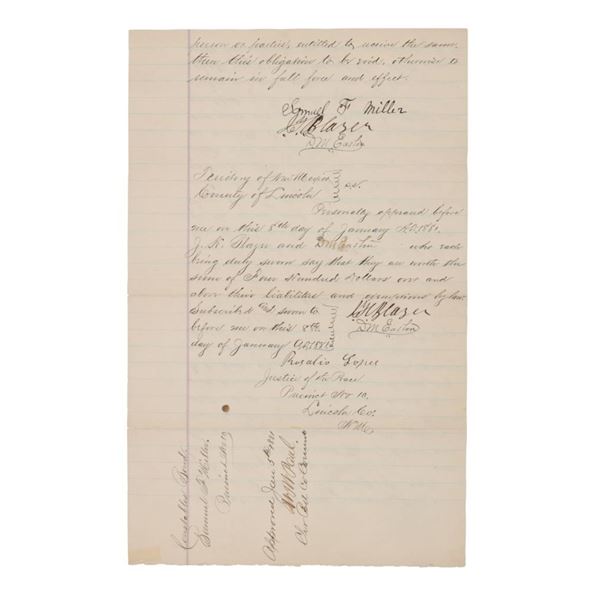 person or parties, entitled to receive the same
then this obligation to be void, otherwise to
remain in full force and effect.
Samuel F Miller
J H Blazer
D M Easton
Territory of New Mexico
County of Lincoln } s.s.
Personally appeard before
me on this 8th day of January A.D. 1881.
J. H. Blazer and D M Easton who each
being duly sworn say that they are worth the
sum of Four Hundred Dollars over and
above their liabilities and exemptions by law.
Subscribed and sworn to
before me on this 8th
day of January A.D. 1881
J H Blazer
D M Easton
Rosalio Lopez
Justice of the Peace
Precinct No 10.
Lincoln Co.
N.M.
Constables Bond.
Samuel F Miller
Precinct No 10
Approved Jany 1881
Co Comm